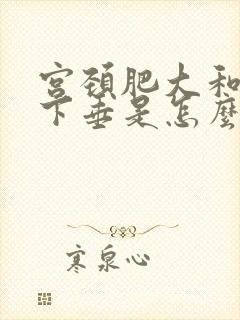 宫颈肥大和
下垂是怎麼
寒泉心